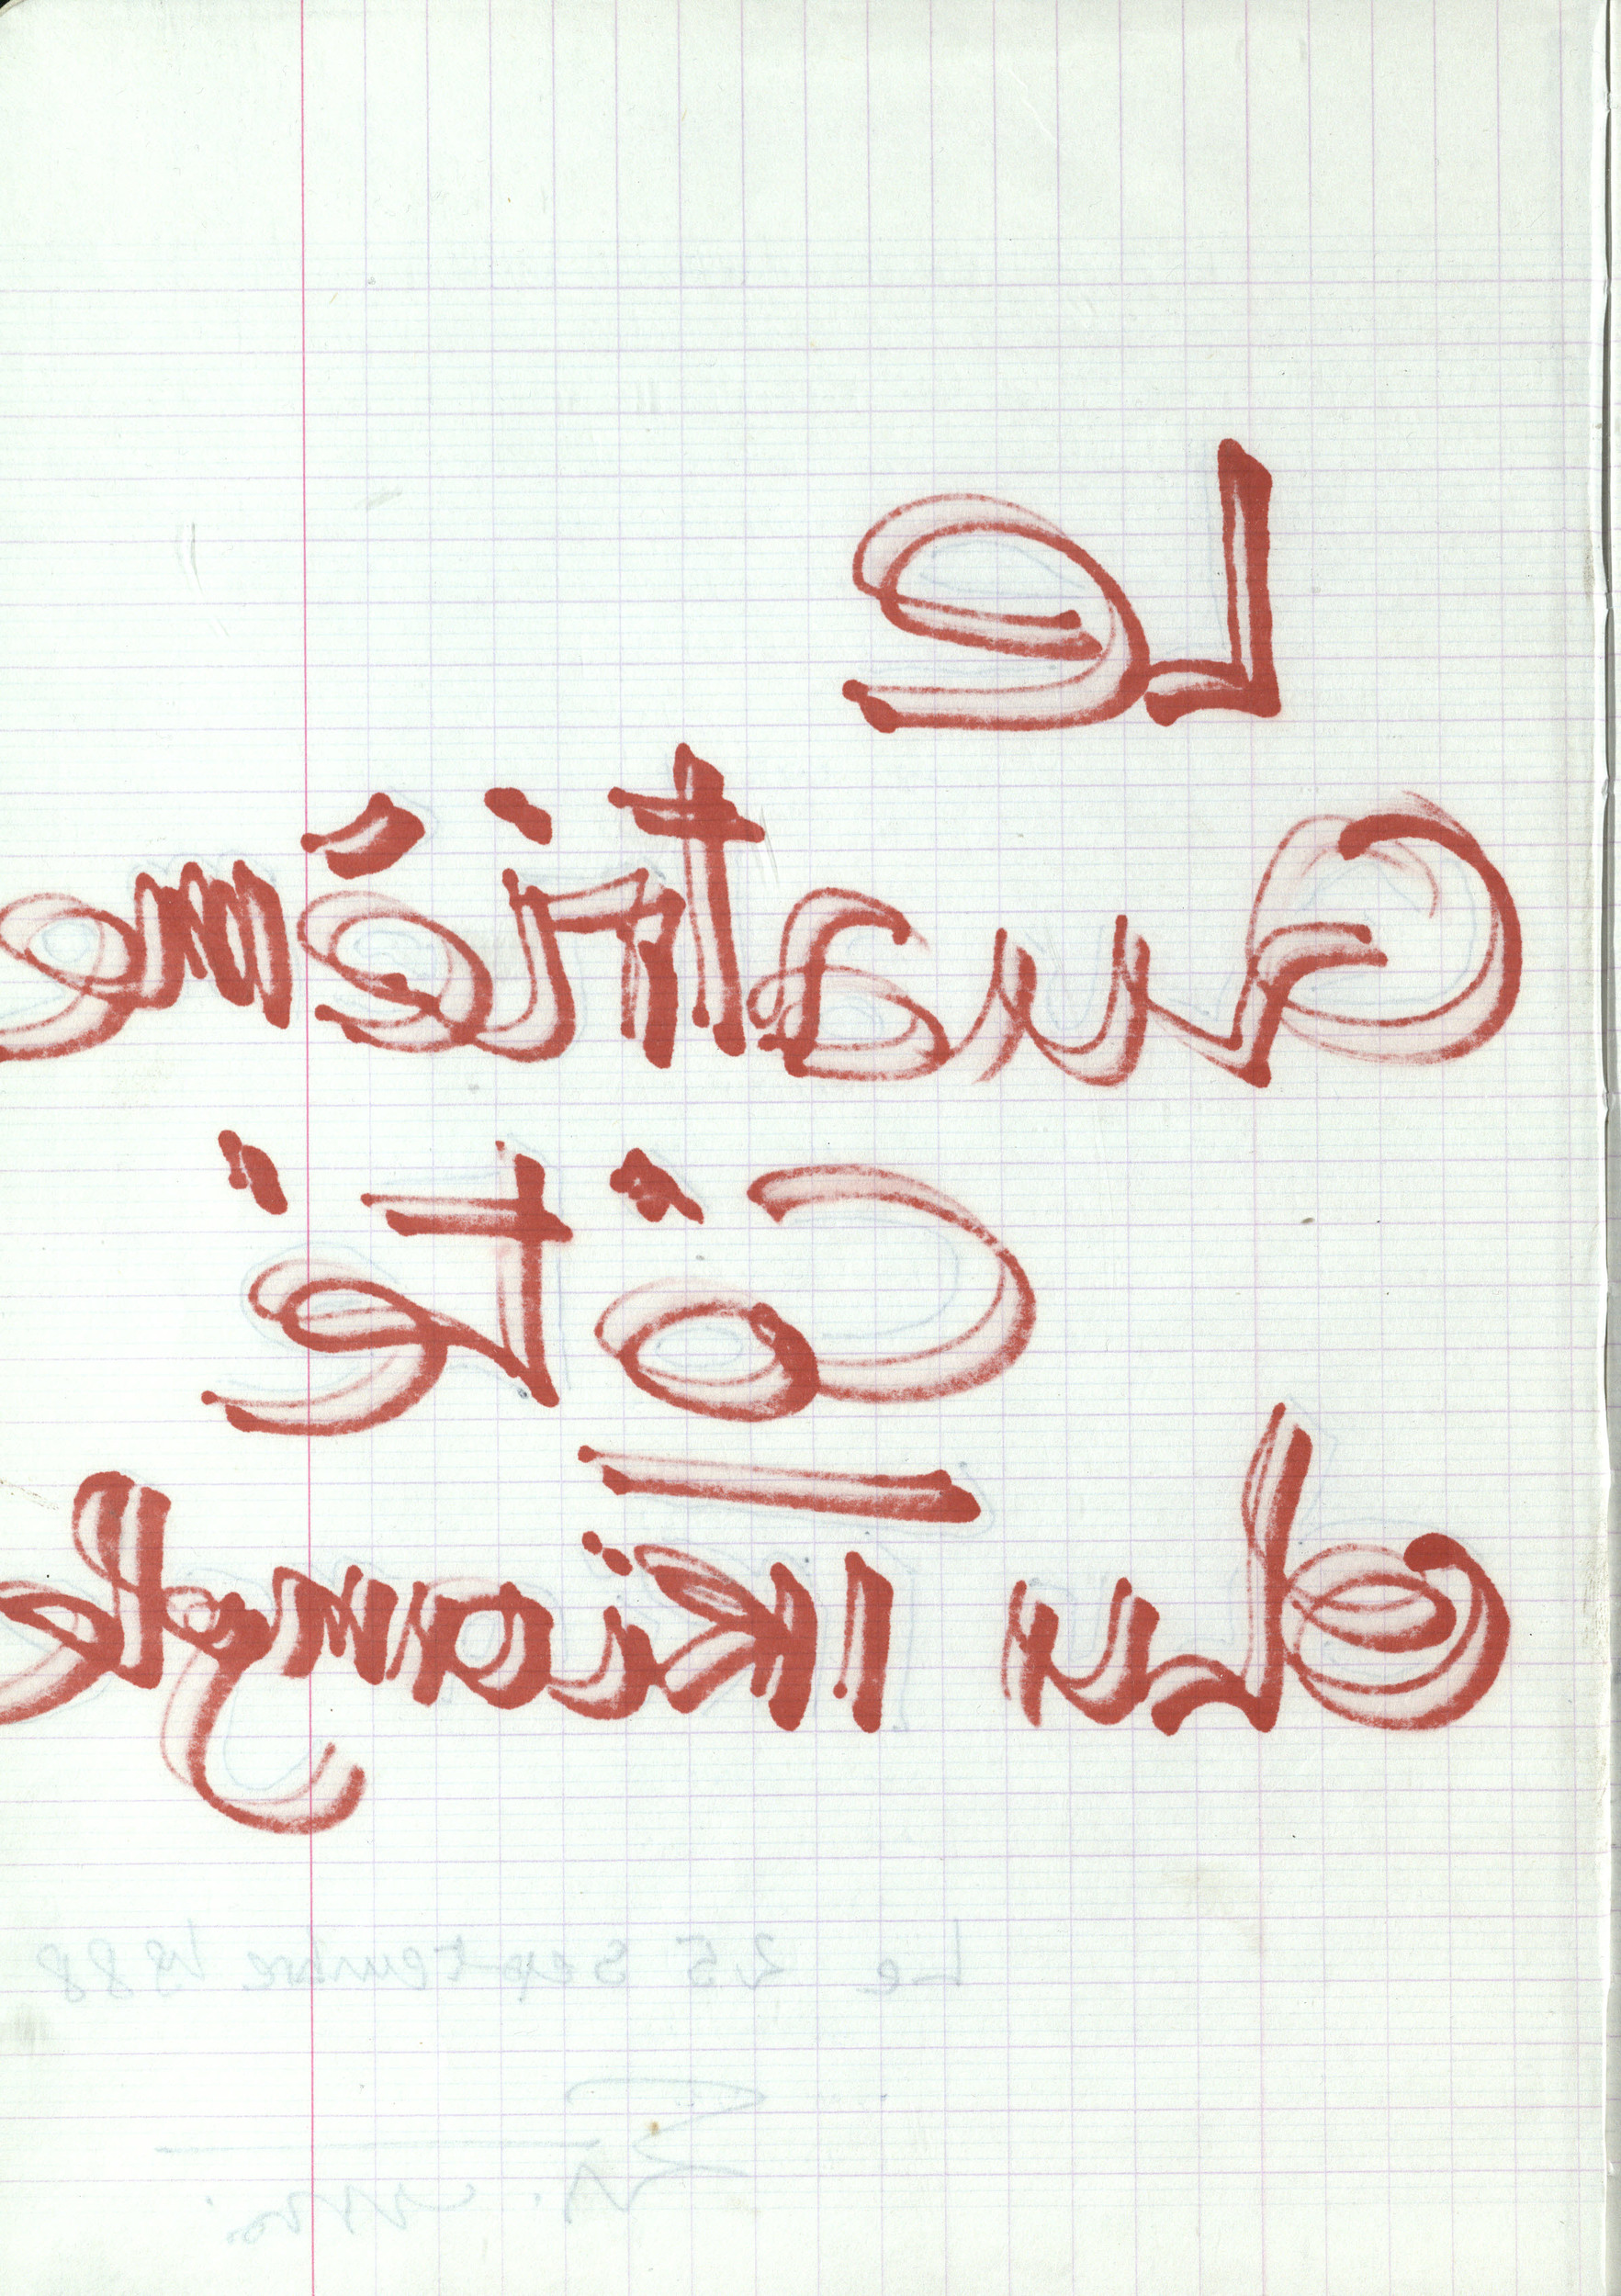 Le
Quatriéme
Coté
du triangle
Le 25 Septembre 1988